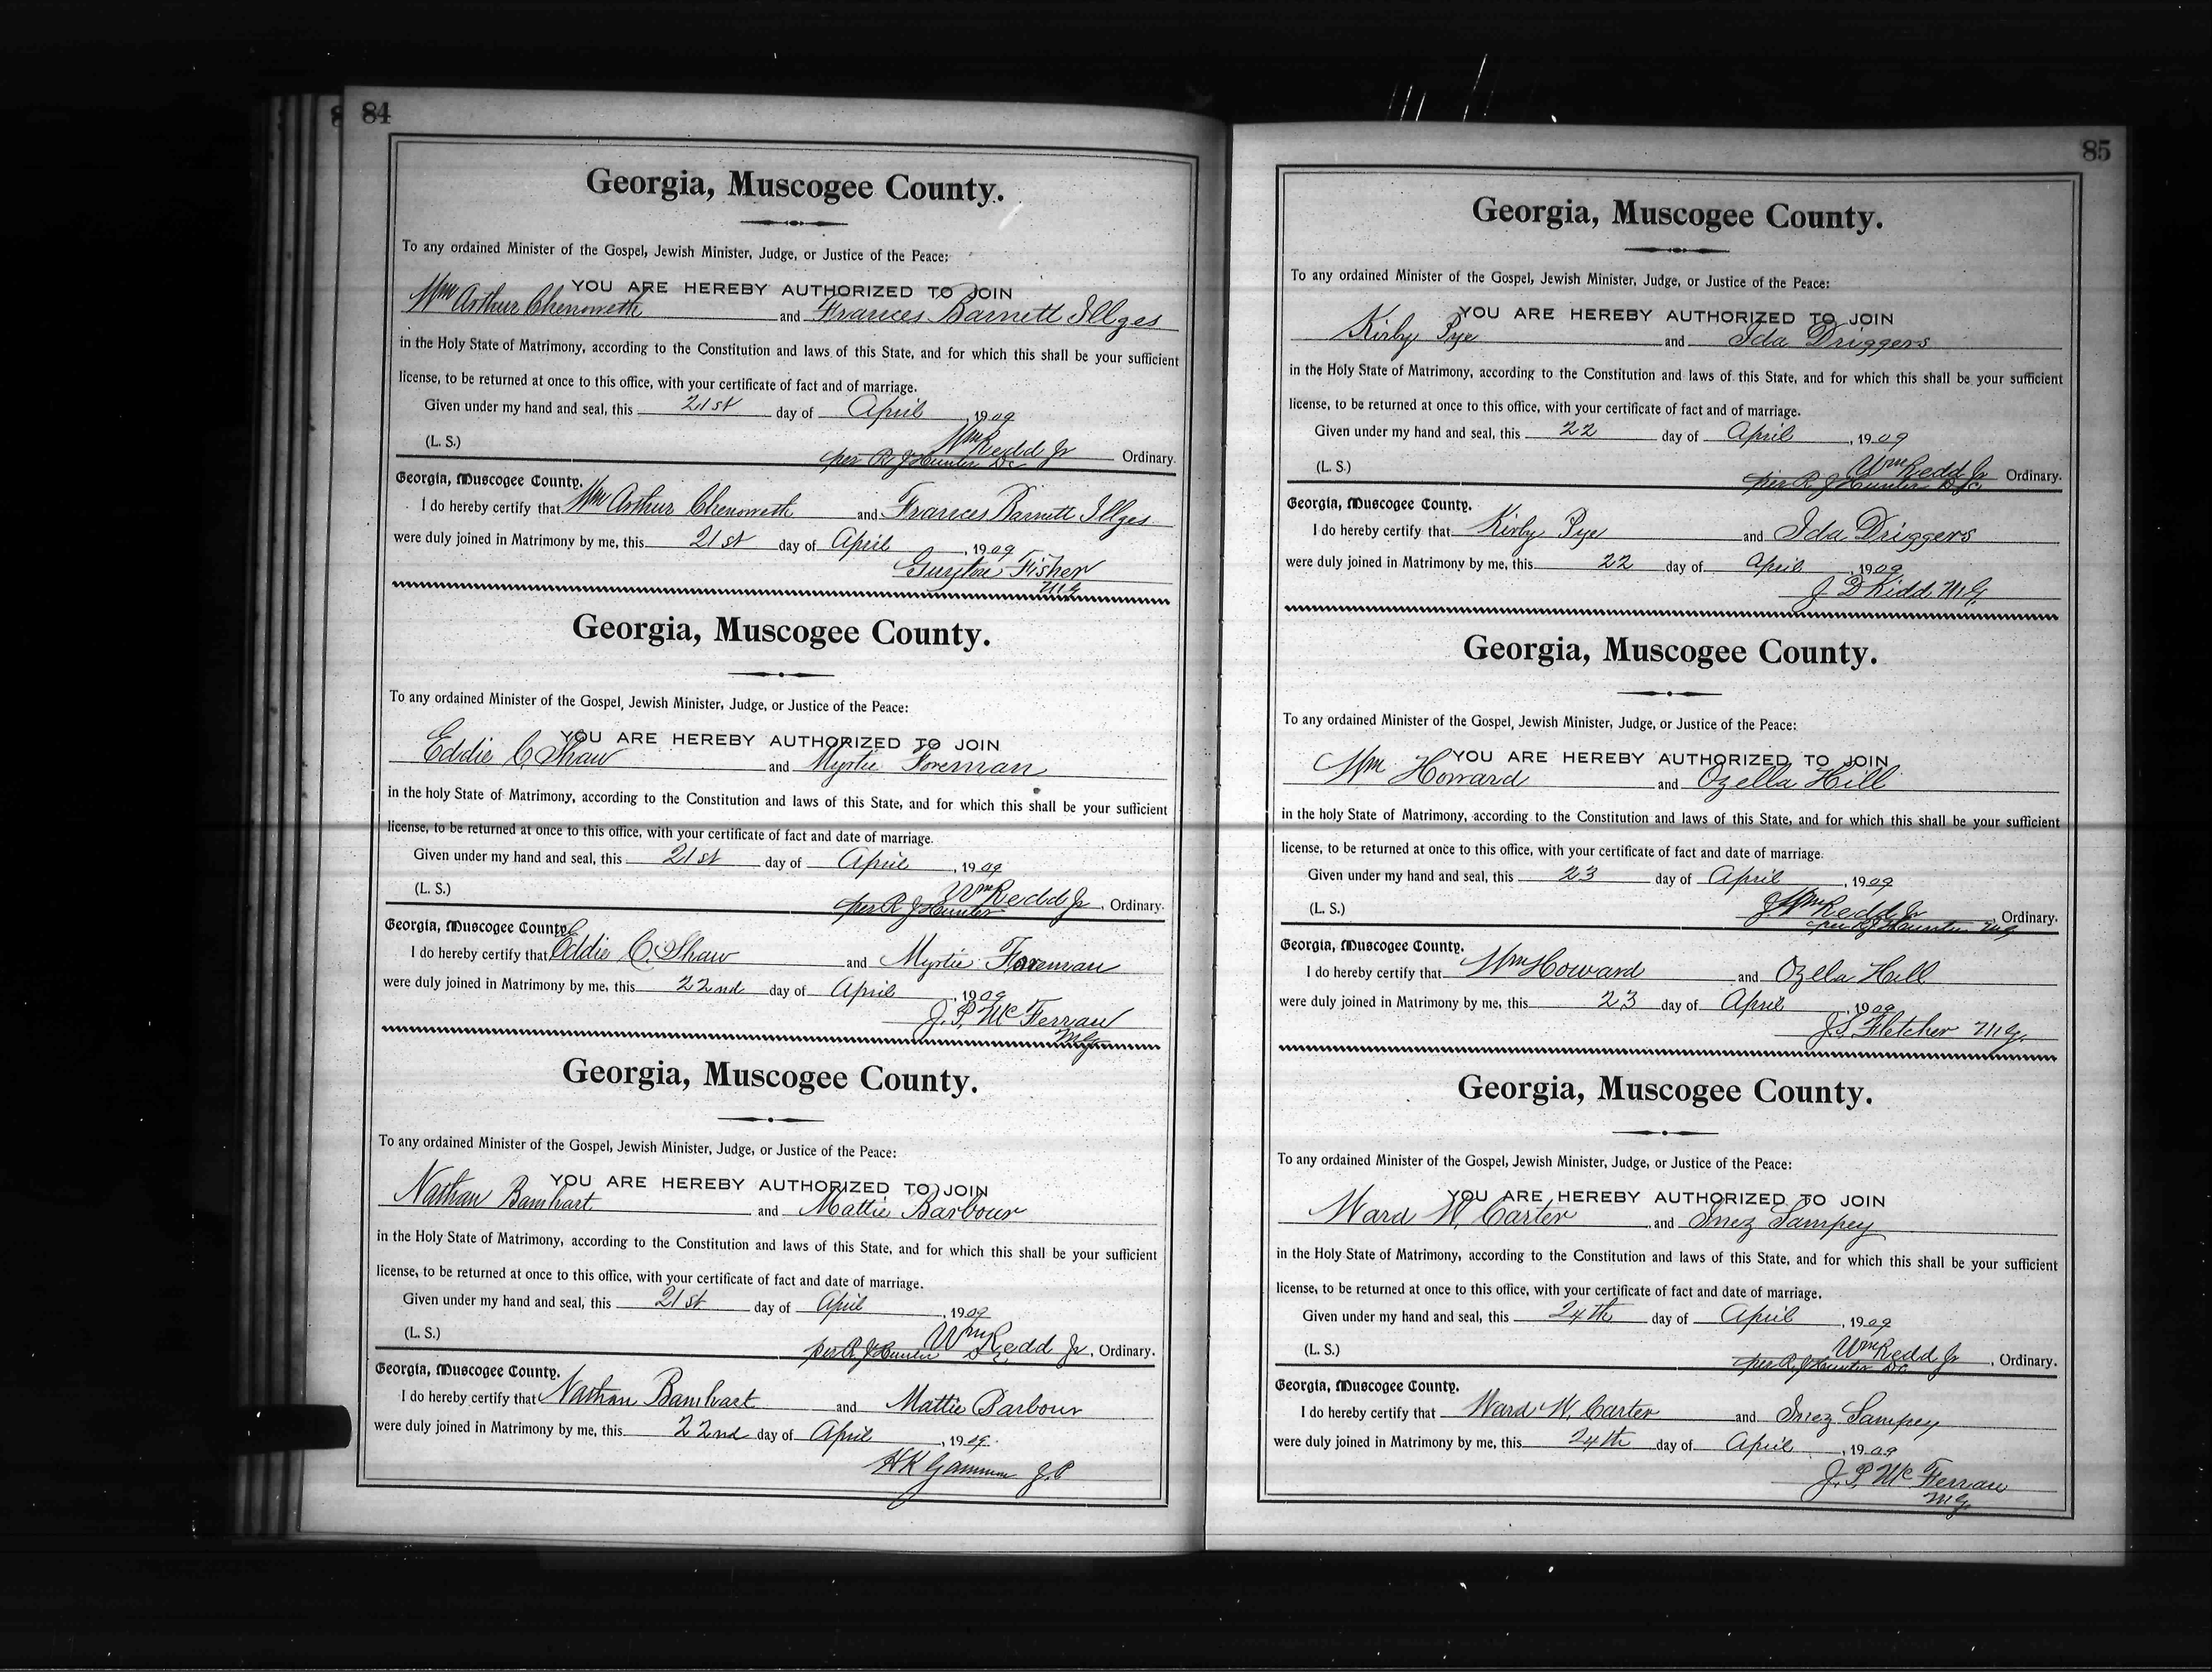 84
Georgia, Muscogee County.
To any ordained Minister of the Gospel, Jewish Minister, Judge, or Justice of the Peace:
YOU ARE HEREBY AUTHORIZED TO JOIN
Wm Arthur Chenoweth and Frances Barnett Illges
in the Holy State of Matrimony, according to the Constitution and laws of this State, and for which this shall be your sufficient
license, to be returned at once to this office, with your certificate of fact and of marriage.
Given under my hand and seal, this 21st day of April, 1909
(L. S.) Wm Redd Jr
per R J Hunter DC Ordinary.
Georgia, Muscogee County.
I do hereby certify that Wm Arthur Chenoweth and Frances Barnett Illges
were duly joined in Matrimony by me, this 21st day of April, 1909
Fisher
MG
Georgia, Muscogee County.
To any ordained Minister of the Gospel, Jewish Minister, Judge, or Justice of the Peace:
YOU ARE HEREBY AUTHORIZED TO JOIN
Eddie C Shaw and Myrtie Foreman
in the holy State of Matrimony, according to the Constitution and laws of this State, and for which this shall be your sufficient
license, to be returned at once to this office, with your certificate of fact and date of marriage.
Given under my hand and seal, this 21st day of April, 1909
(L. S.) Wm Redd Jr, Ordinary.
per R J Hunter
Georgia, Muscogee County.
I do hereby certify that Eddie C. Shaw and Myrtie Foreman
were duly joined in Matrimony by me, this 22nd day of April, 1909
J. P. McFerran
MG
Georgia, Muscogee County.
To any ordained Minister of the Gospel, Jewish Minister, Judge, or Justice of the Peace:
YOU ARE HEREBY AUTHORIZED TO JOIN
Nathan Barnhart and Mattie Barbour
in the Holy State of Matrimony, according to the Constitution and laws of this State, and for which this shall be your sufficient
license, to be returned at once to this office, with your certificate of fact and date of marriage.
Given under my hand and seal, this 21st day of April, 1909
(L. S.) Wm Redd Jr, Ordinary.
per R J Hunter DC
Georgia, Muscogee County.
I do hereby certify that Nathan Barnhart and Mattie Barbour
were duly joined in Matrimony by me, this 22nd day of April, 1909.
HK Gammon J.P
85
Georgia, Muscogee County.
To any ordained Minister of the Gospel, Jewish Minister, Judge, or Justice of the Peace:
YOU ARE HEREBY AUTHORIZED TO JOIN
Kirby Pye and Ida Driggers
in the Holy State of Matrimony, according to the Constitution and laws of this State, and for which this shall be your sufficient
license, to be returned at once to this office, with your certificate of fact and of marriage.
Given under my hand and seal, this 22 day of April, 1909
(L. S.) Wm Redd Jr Ordinary.
per R J Hunter D.C.
Georgia, Muscogee County.
I do hereby certify that Kirby Pye and Ida Driggers
were duly joined in Matrimony by me, this 22 day of April, 1909
J D Kidd M.G.
Georgia, Muscogee County.
To any ordained Minister of the Gospel, Jewish Minister, Judge, or Justice of the Peace:
YOU ARE HEREBY AUTHORIZED TO JOIN
Wm Howard and Ozella Hill
in the holy State of Matrimony, according to the Constitution and laws of this State, and for which this shall be your sufficient
license, to be returned at once to this office, with your certificate of fact and date of marriage.
Given under my hand and seal, this 23 day of April, 1909
(L. S.) Wm Redd Jr, Ordinary.
per R J Hunter
Georgia, Muscogee County.
I do hereby certify that Wm Howard and Ozella Hill
were duly joined in Matrimony by me, this 23 day of April, 1909
J.S. Fletcher M.G.
Georgia, Muscogee County.
To any ordained Minister of the Gospel, Jewish Minister, Judge, or Justice of the Peace:
YOU ARE HEREBY AUTHORIZED TO JOIN
Ward W. Carter and Inez Sampey
in the Holy State of Matrimony, according to the Constitution and laws of this State, and for which this shall be your sufficient
license, to be returned at once to this office, with your certificate of fact and date of marriage.
Given under my hand and seal, this 24th day of April, 1909
(L. S.) Wm Redd Jr, Ordinary.
per R. J Hunter DC
Georgia, Muscogee County.
I do hereby certify that Ward W. Carter and Inez Sampey
were duly joined in Matrimony by me, this 24th day of April, 1909
J. P. McFerran
MG